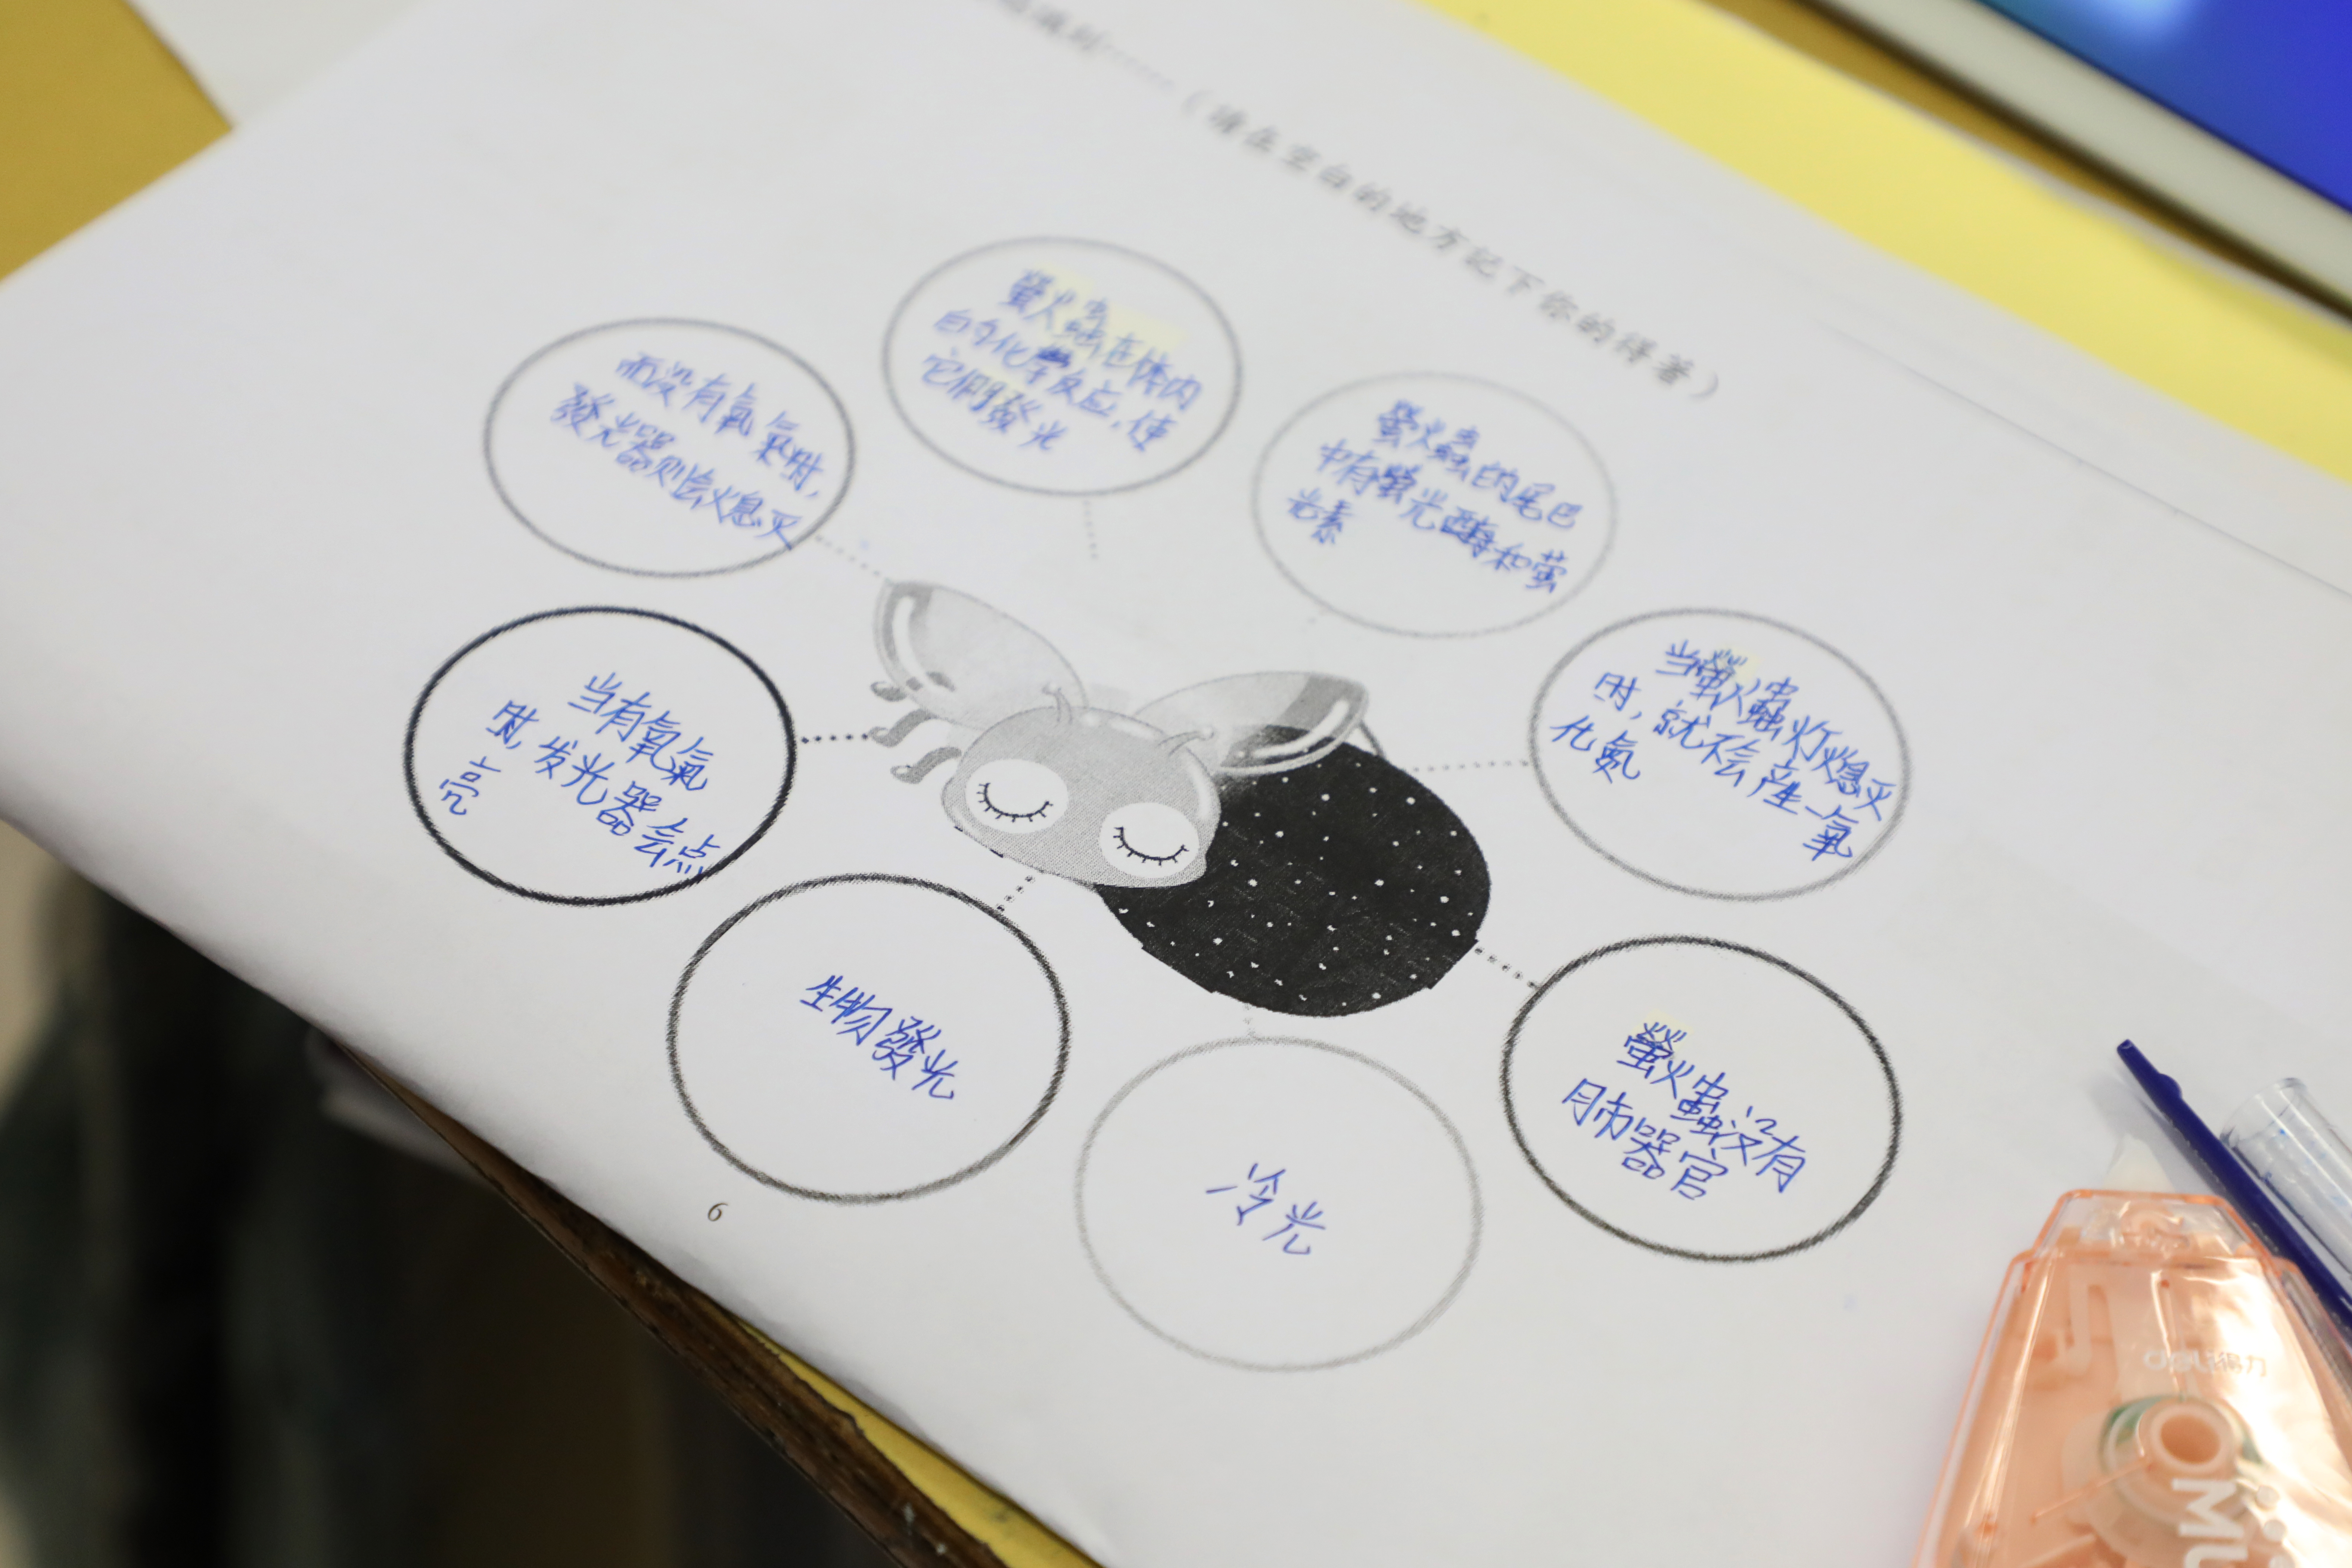 （請在空白的地方記下你的得著）
螢火蟲在体内
的化學反应，使
它們發光
而没有氧氣时，
發光器则会熄灭
螢火蟲的尾巴
中有螢光酶和萤
光素
当螢火蟲灯熄灭
时，就不会産生一氧
化氮
当有氧氣
时，发光器会点
亮
生物發光
冷光
螢火蟲没有
肺器官
6
deli得力